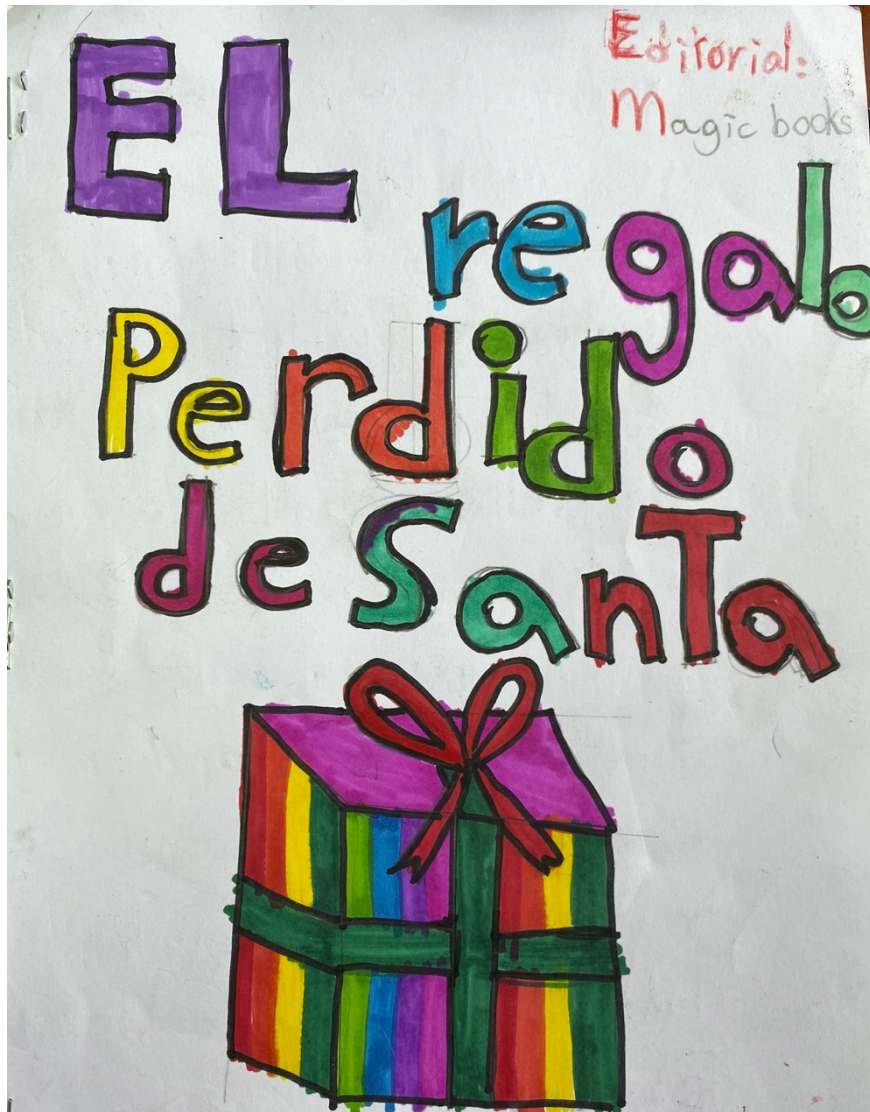 Editorial:
Magic books
EL
regalo
Perdido
de SanTa